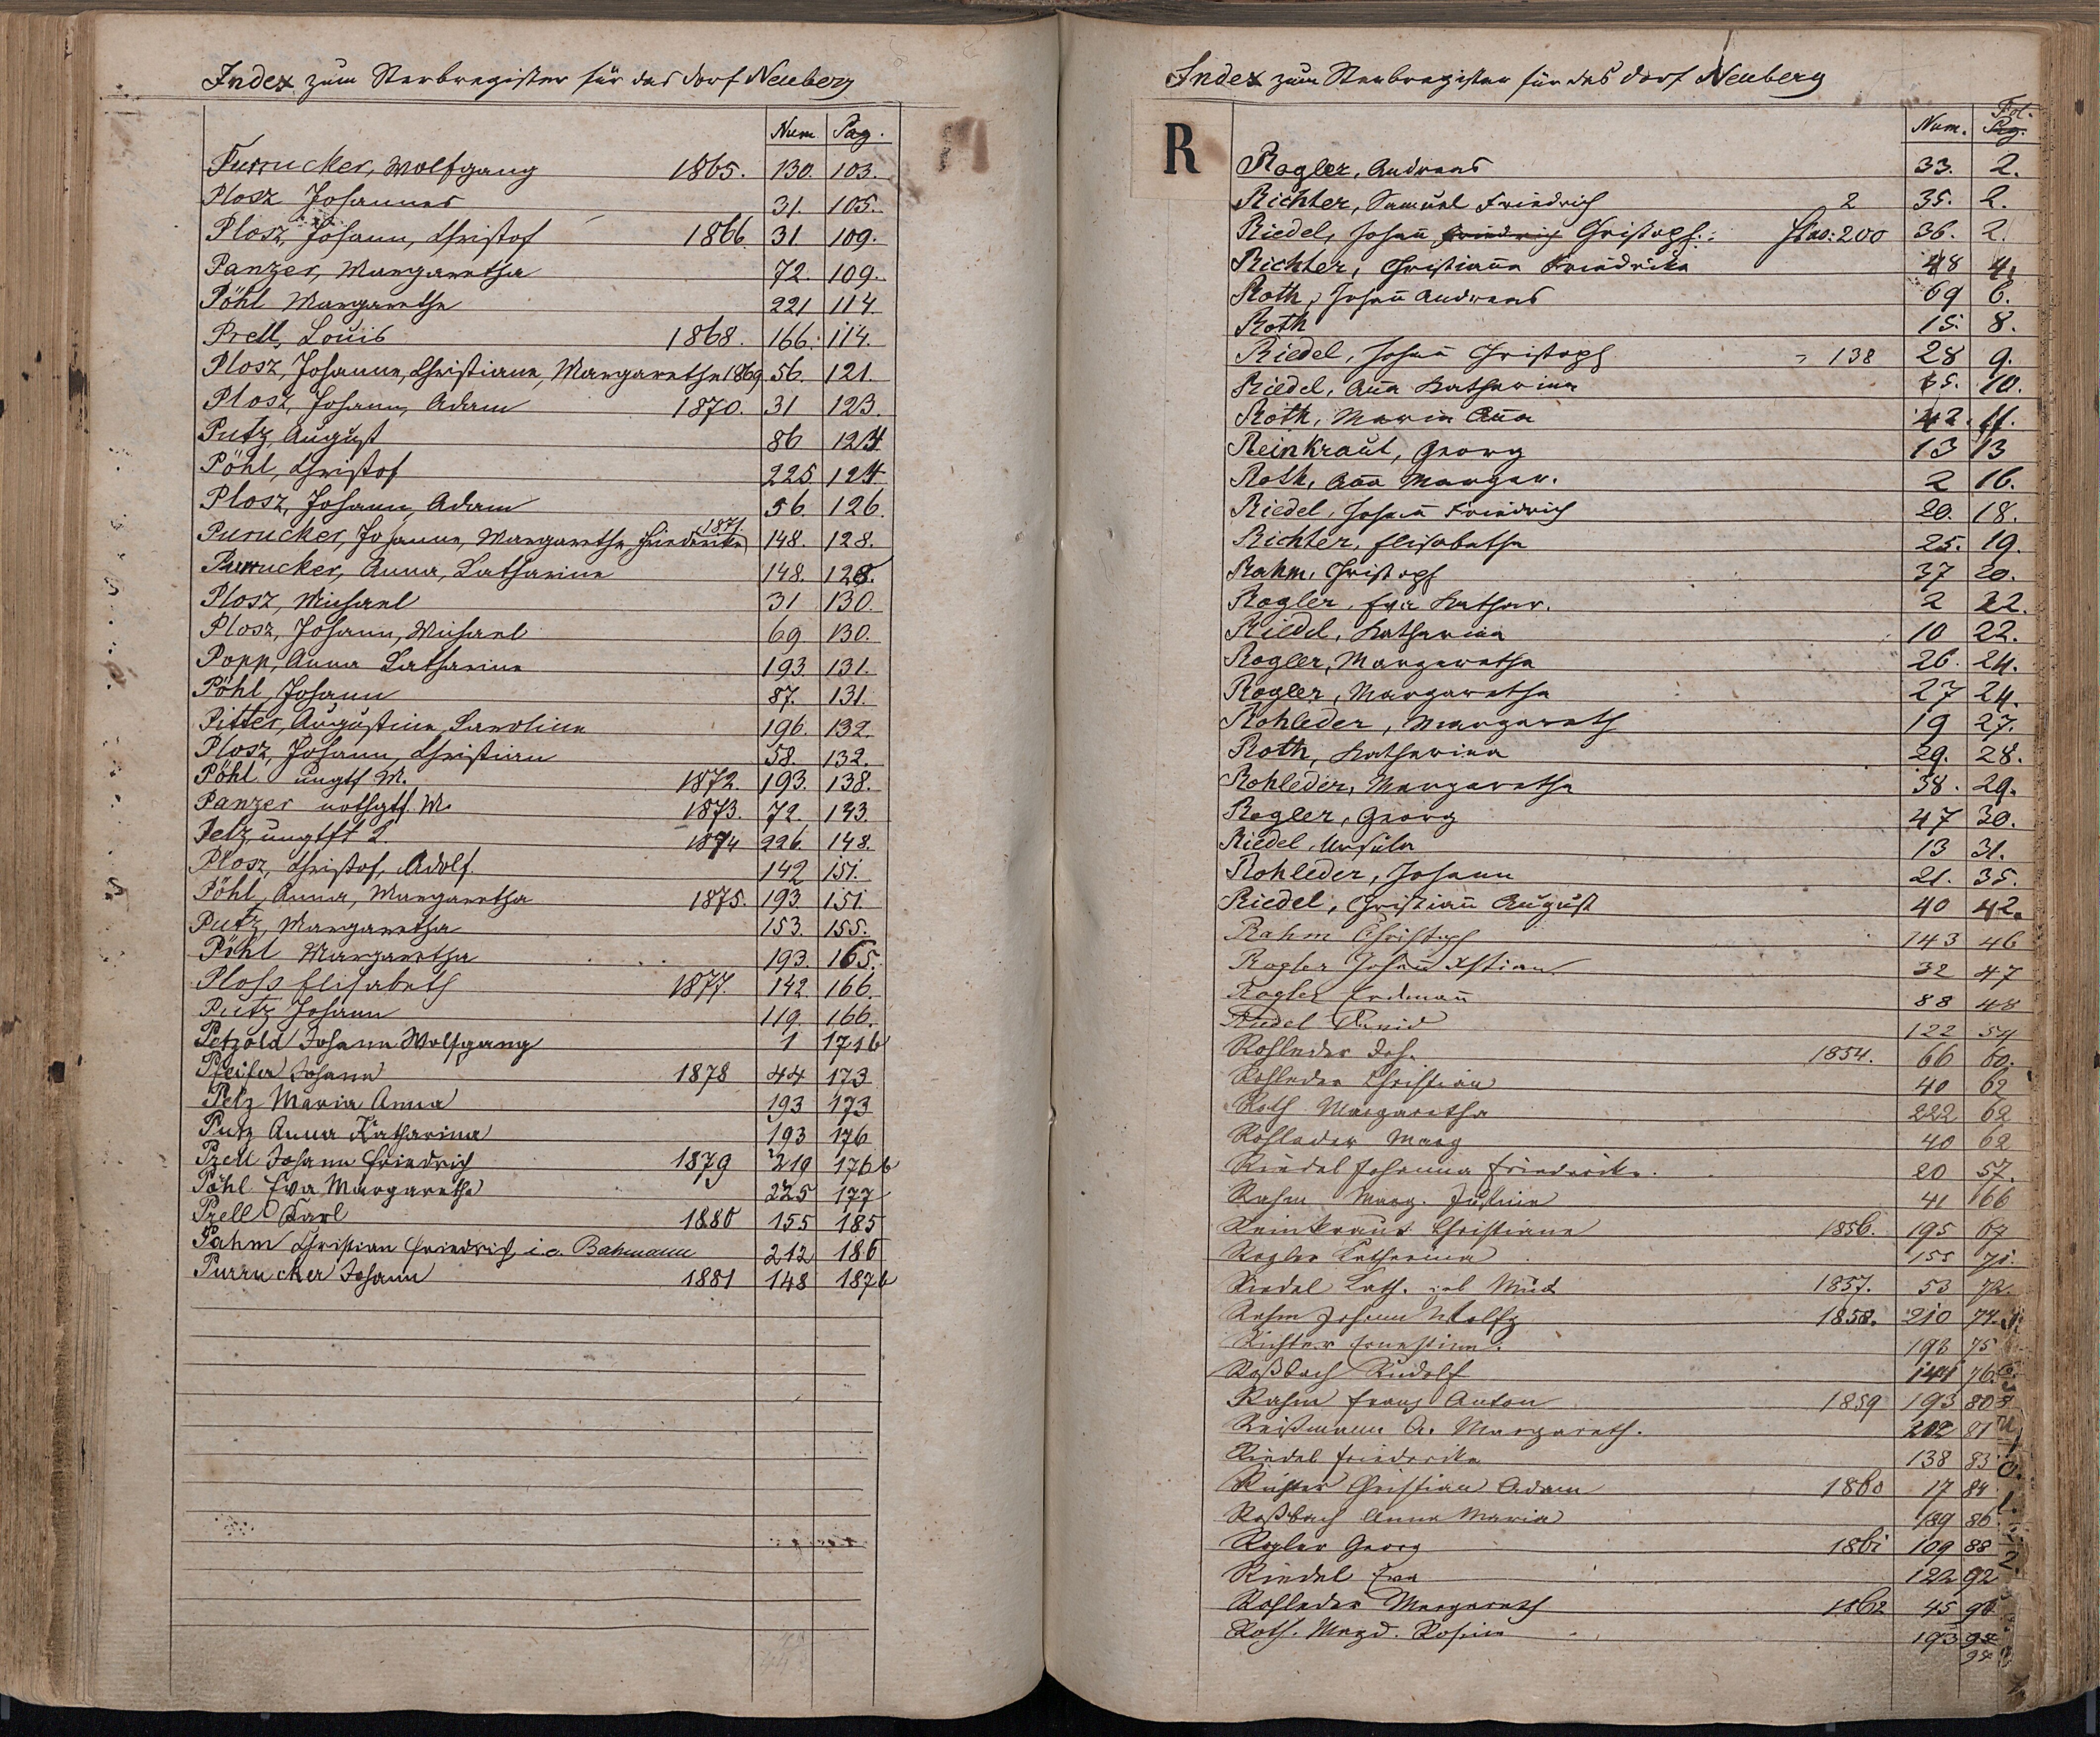 Index zum Sterbregister für das Dorf Neuberg
Num. Pag.
Purrucker, Wolfgang 1865. 130. 103.
Plosz Johannes 31. 105.
Plosz, Johann, Christof 1866. 31 109.
Panzer, Margaretha 72. 109.
Pöhl Margaretha 221 114.
Prell, Louis 1868. 166. 114.
Plosz, Johanne, Christiane, Margaretha 1869 56. 121.
Plosz, Johann, Adam 1870. 31 123.
Putz, August 86 124
Pöhl, Christof 225. 124
Plosz, Johann, Adam 56. 126.
Purucker, Johanne, Margaretha, Friederike 1871. 148. 128.
Purrucker, Anna, Catharine 148. 128.
Plosz, Michael 31 130.
Plosz, Johann, Michael 69. 130.
Popp, Anna Catharine 193. 131.
Pöhl, Johann 87. 131.
Pitter, Augustine, Caroline 196. 132.
Plosz, Johann, Christian 58. 132.
Pöhl ungtf. M. 1872. 193. 138.
Panzer nothgtf. M. 1873. 72. 143.
Petz, ungtft 1874 226. 148.
Plosz, Christof, Adolf. 142 151.
Pöhl, Anna, Margaretha 1875. 193 151.
Putz, Margaretha 153. 155.
Pöhl Margaretha 193. 165.
Ploss Elisabeth 1877. 142. 166.
Putz Johann 119. 166.
Petzold Johann Wolfgang 1 171b
Pfeifer Johann 1878 44 173
Petz Maria Anna 193 173
Putz Anna Katharina 193 176
Prell Johann Friedrich 1879 219 176b
Pöhl Eva Margaretha 225 177
Prell Karl 1880 155 185
Pahm Christian Friedrich i.a. Bahmann 212 186
Purrucker Johann 1881 148 187b
Index zum Sterbregister für das Dorf Neuberg
R
Num. Fol. Pag.
Rogler, Andreas 33. 2.
Richter, Samuel Friedrich 2 35. 2.
Riedel, Johann Friedrich Christoph: Hno: 200 36. 2.
Richter, Christiana Friedrika 48 4.
Roth, Johann Andreas 69 6.
Roth 15. 8.
Riedel, Johann Christoph 138 28 9.
Riedel, Anna Katharina 65. 10.
Roth, Maria Anna 42. 11.
Reinkraut, Georg 13 13
Roth, Anna Margar. 2 16.
Riedel, Johann Friedrich 20. 18.
Richter, Elisabetha 25. 19.
Rahm, Christoph 37 20.
Rogler, Eva Kathar. 2 22.
Riedel, Katharina 10 22.
Rogler, Margaretha 26. 24.
Rogler, Margaretha 27 24.
Rohleder, Margareth 19 27.
Roth, Katharina 29. 28.
Rohleder, Margaretha 38. 29.
Rogler, Georg 47 30.
Riedel, Ursula 13 31.
Rohleder, Johann 21. 35.
Riedel, Christian August 40 42.
Rahm Christoph 143 46
Rogler Johann Xstian 32 47
Rogler Erdmann 88 48
Riedel David 122 54
Rohleder Joh. 1854. 66 60.
Rohleder Christian 40 62
Roth Margaretha 222 62
Rohleder Marg 40 62
Riedel Johanna Friedericke. 20 57.
Rahm Marg. Justine 41 166
Reinkraut Christiane 1856. 195 67
Rogler Katharina 155 71.
Riedel Kath. geb 1857. 53 72.
Rahm Johann Wolfg 1858. 210 74.
Richter Ernestine. 193 75
Roßbach Rudolf 141 76.
Rahm Franz Anton 1859 193 80
Reißmann A. Margareth. 202 81
Riedel Friederike 138 83
Richter Christian Adam 1860 17 84
Roßbach Anna Maria 189 86
Rogler Georg 1861 109 88
Riedel Eva 122 92
Rohleder Margareth 1862 45 96
Roth. Magd. Rosine 193 94